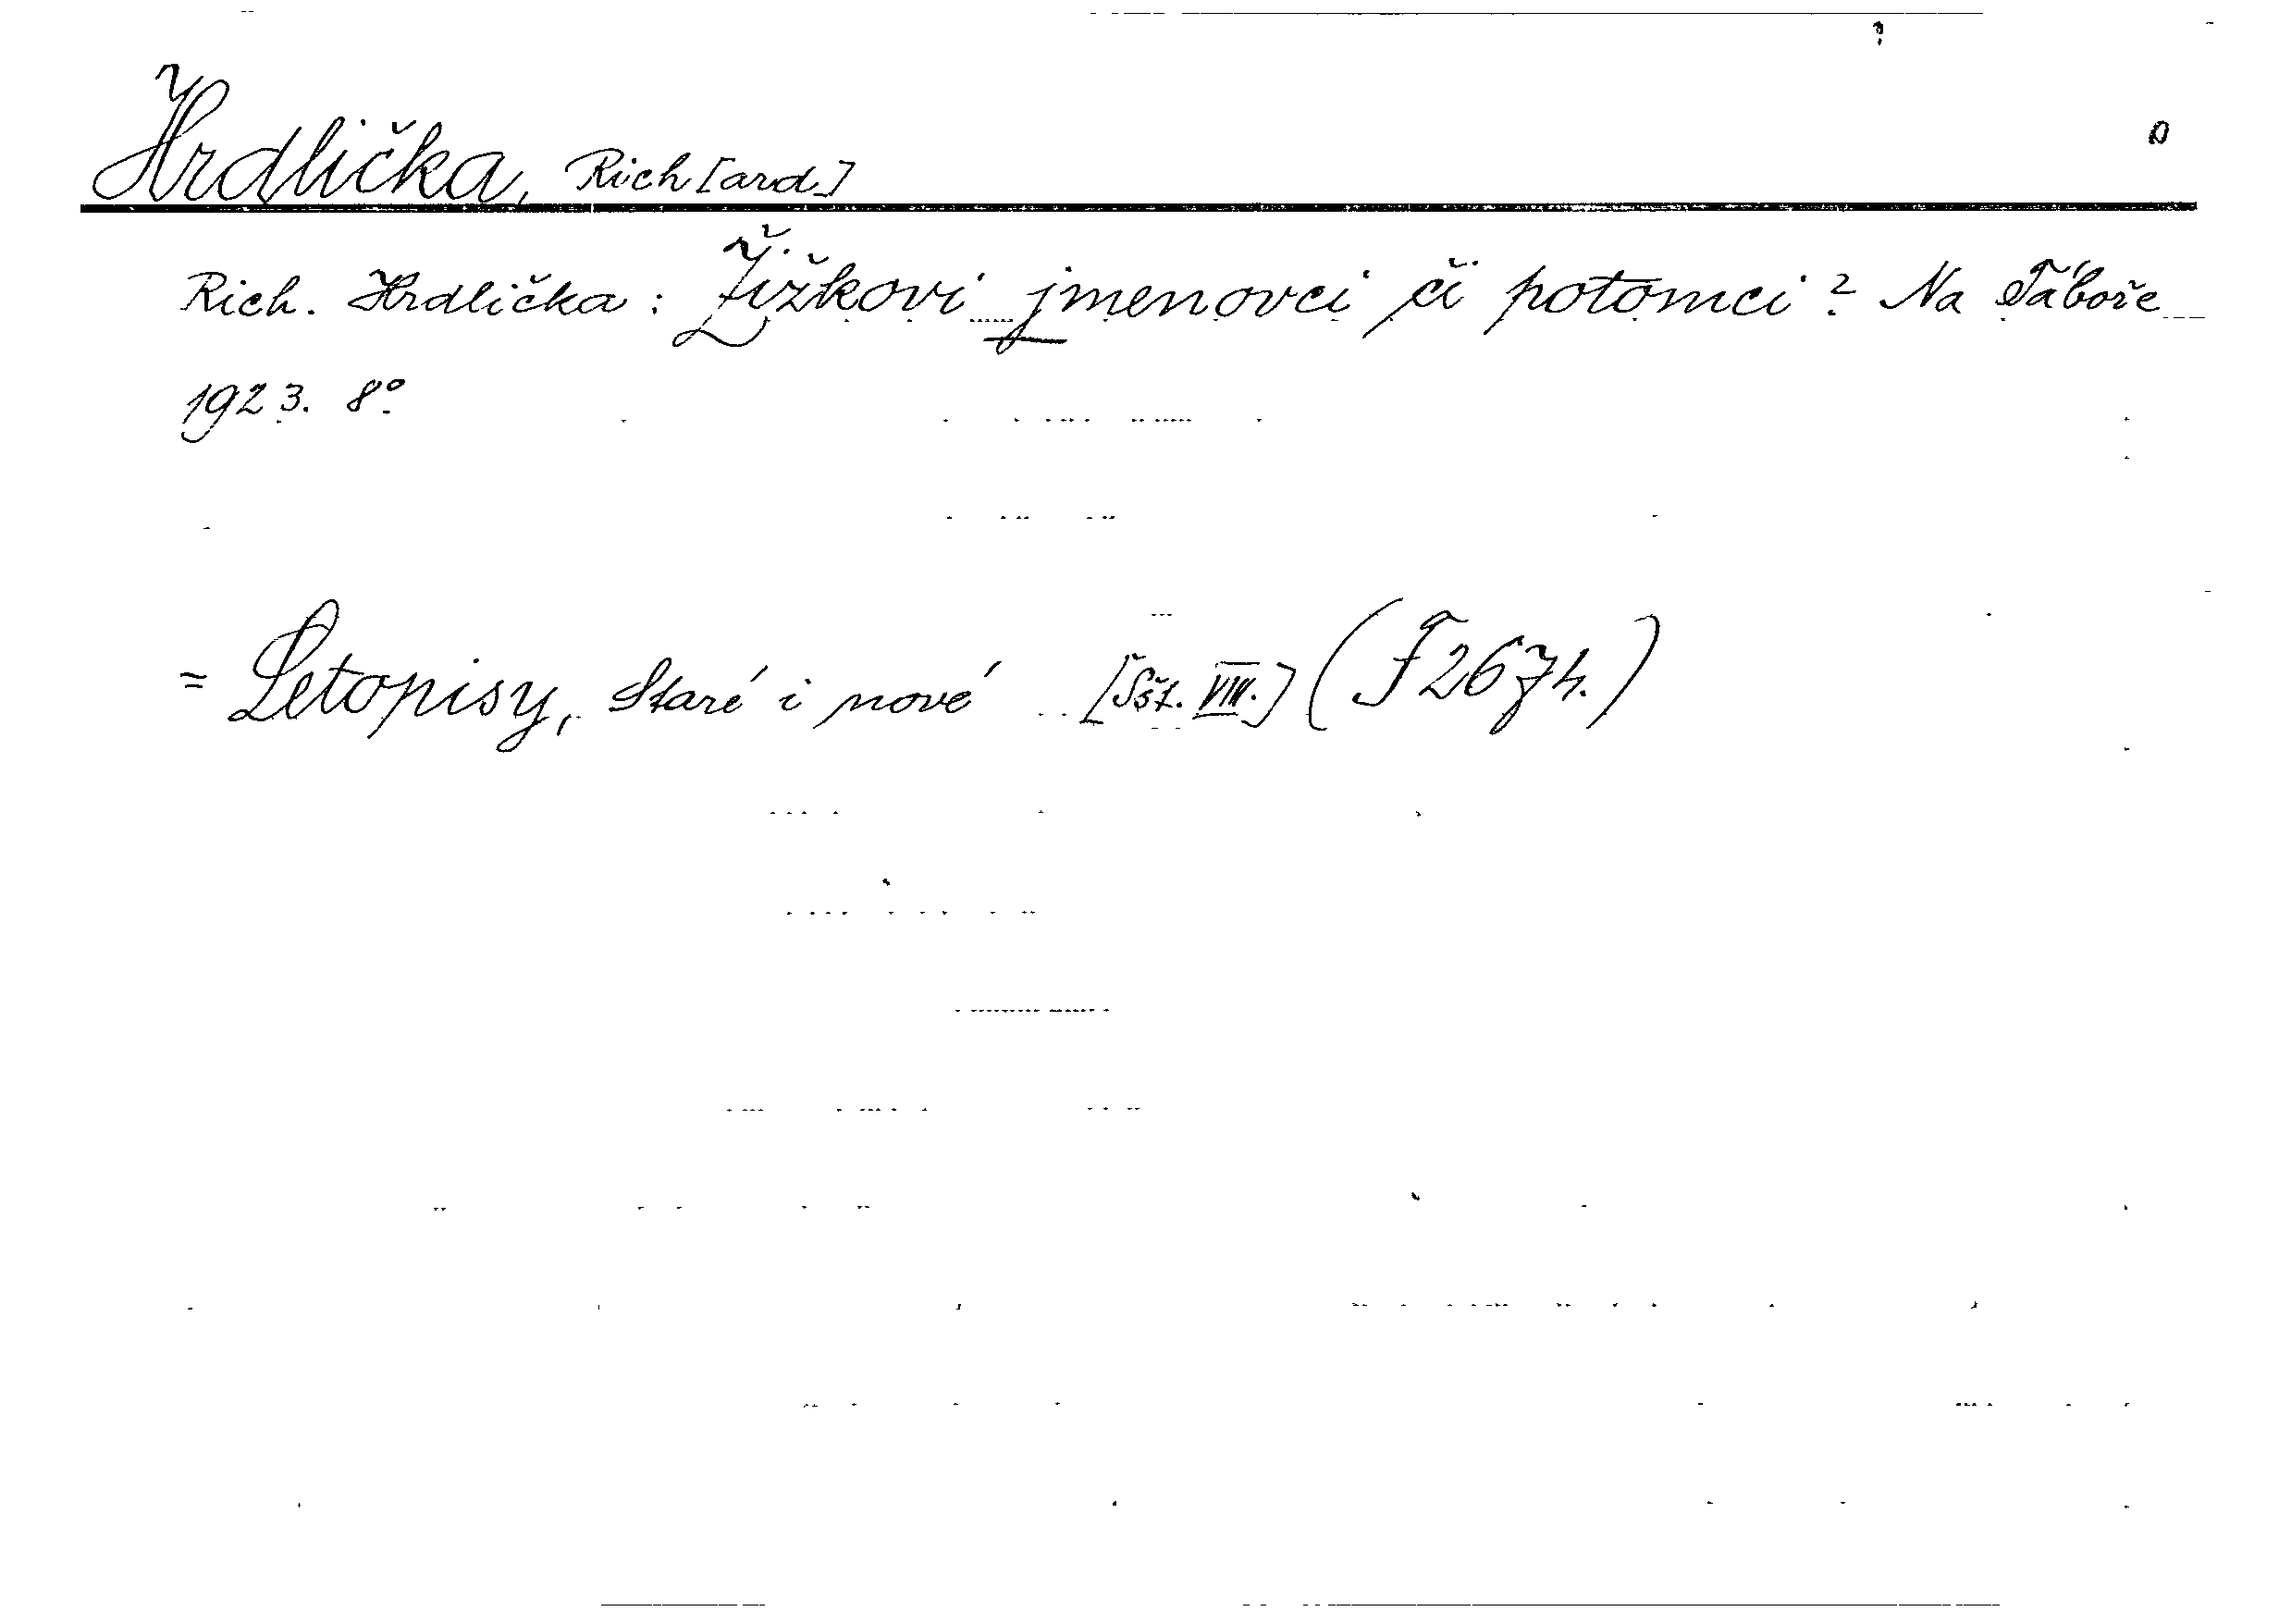 Hrdlička, Rich[ard]
Rich. Hrdlička: Žižkovi jmenovci či potomci? Na Táboře
1923. 8°
= Letopisy, Staré i nové [Sšt. VIII.] (F 2674.)